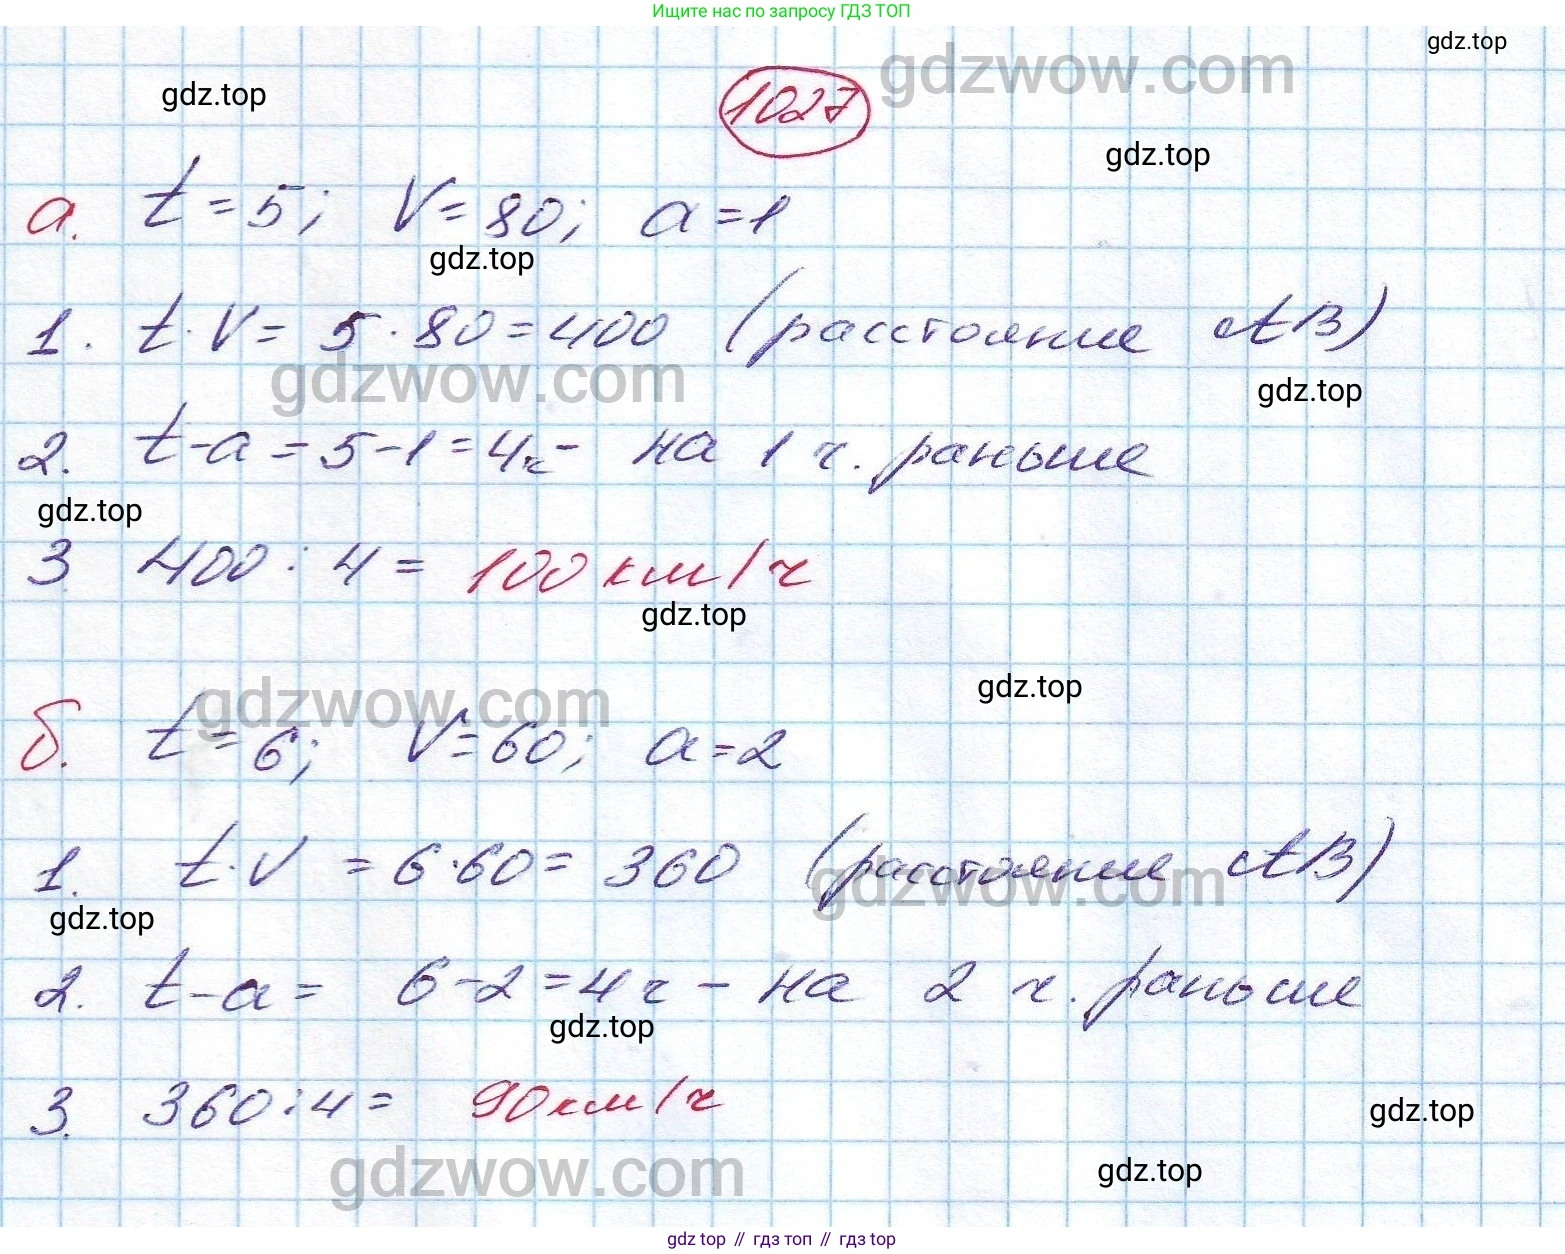 Ищите нас по запросу ГДЗ ТОП
gdz.top
gdzwow.com
gdz.top
1027
gdz.top
а. t = 5; V = 80; a = 1
gdz.top
1. t · V = 5 · 80 = 400 (расстояние AB)
gdzwow.com
gdz.top
2. t - a = 5 - 1 = 4ч - на 1 ч. раньше
gdz.top
3 400 : 4 = 100 км/ч
gdz.top
gdz.top
gdzwow.com
б. t = 6; V = 60; a = 2
1. t · V = 6 · 60 = 360 (расстояние AB)
gdzwow.com
gdz.top
2. t - a = 6 - 2 = 4 ч - на 2 ч. раньше
gdz.top
3. 360 : 4 = 90 км/ч
gdz.top
gdzwow.com
gdz.top
gdz top // гдз топ // гдз top